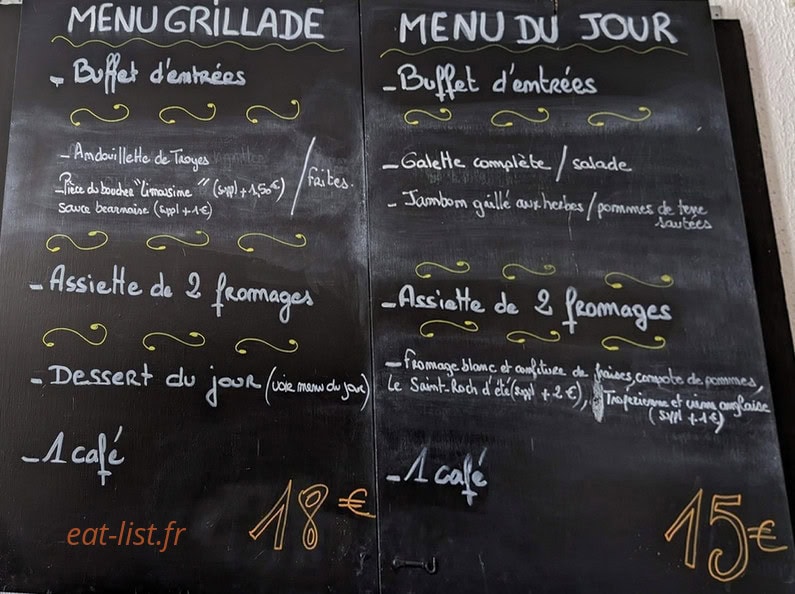 MENU GRILLADE
- Buffet d'entrées
- Andouillette de Troyes
- Pièce du boucher "limousine" (suppl + 1,50€)
sauce bearnaise (suppl + 1€)
/ frites.
- Assiette de 2 fromages
- Dessert du jour (voir menu du jour)
- 1 café
18 €
eat-list.fr
MENU DU JOUR
- Buffet d'entrées
- Galette complète / salade
- Jambon grillé aux herbes / pommes de terre
sautées
- Assiette de 2 fromages
- Fromage blanc et confiture de fraises, compote de pommes,
Le Saint-Roch d'été (suppl + 2€), Tropézienne et crème anglaise
(suppl + 1€)
- 1 café
15 €